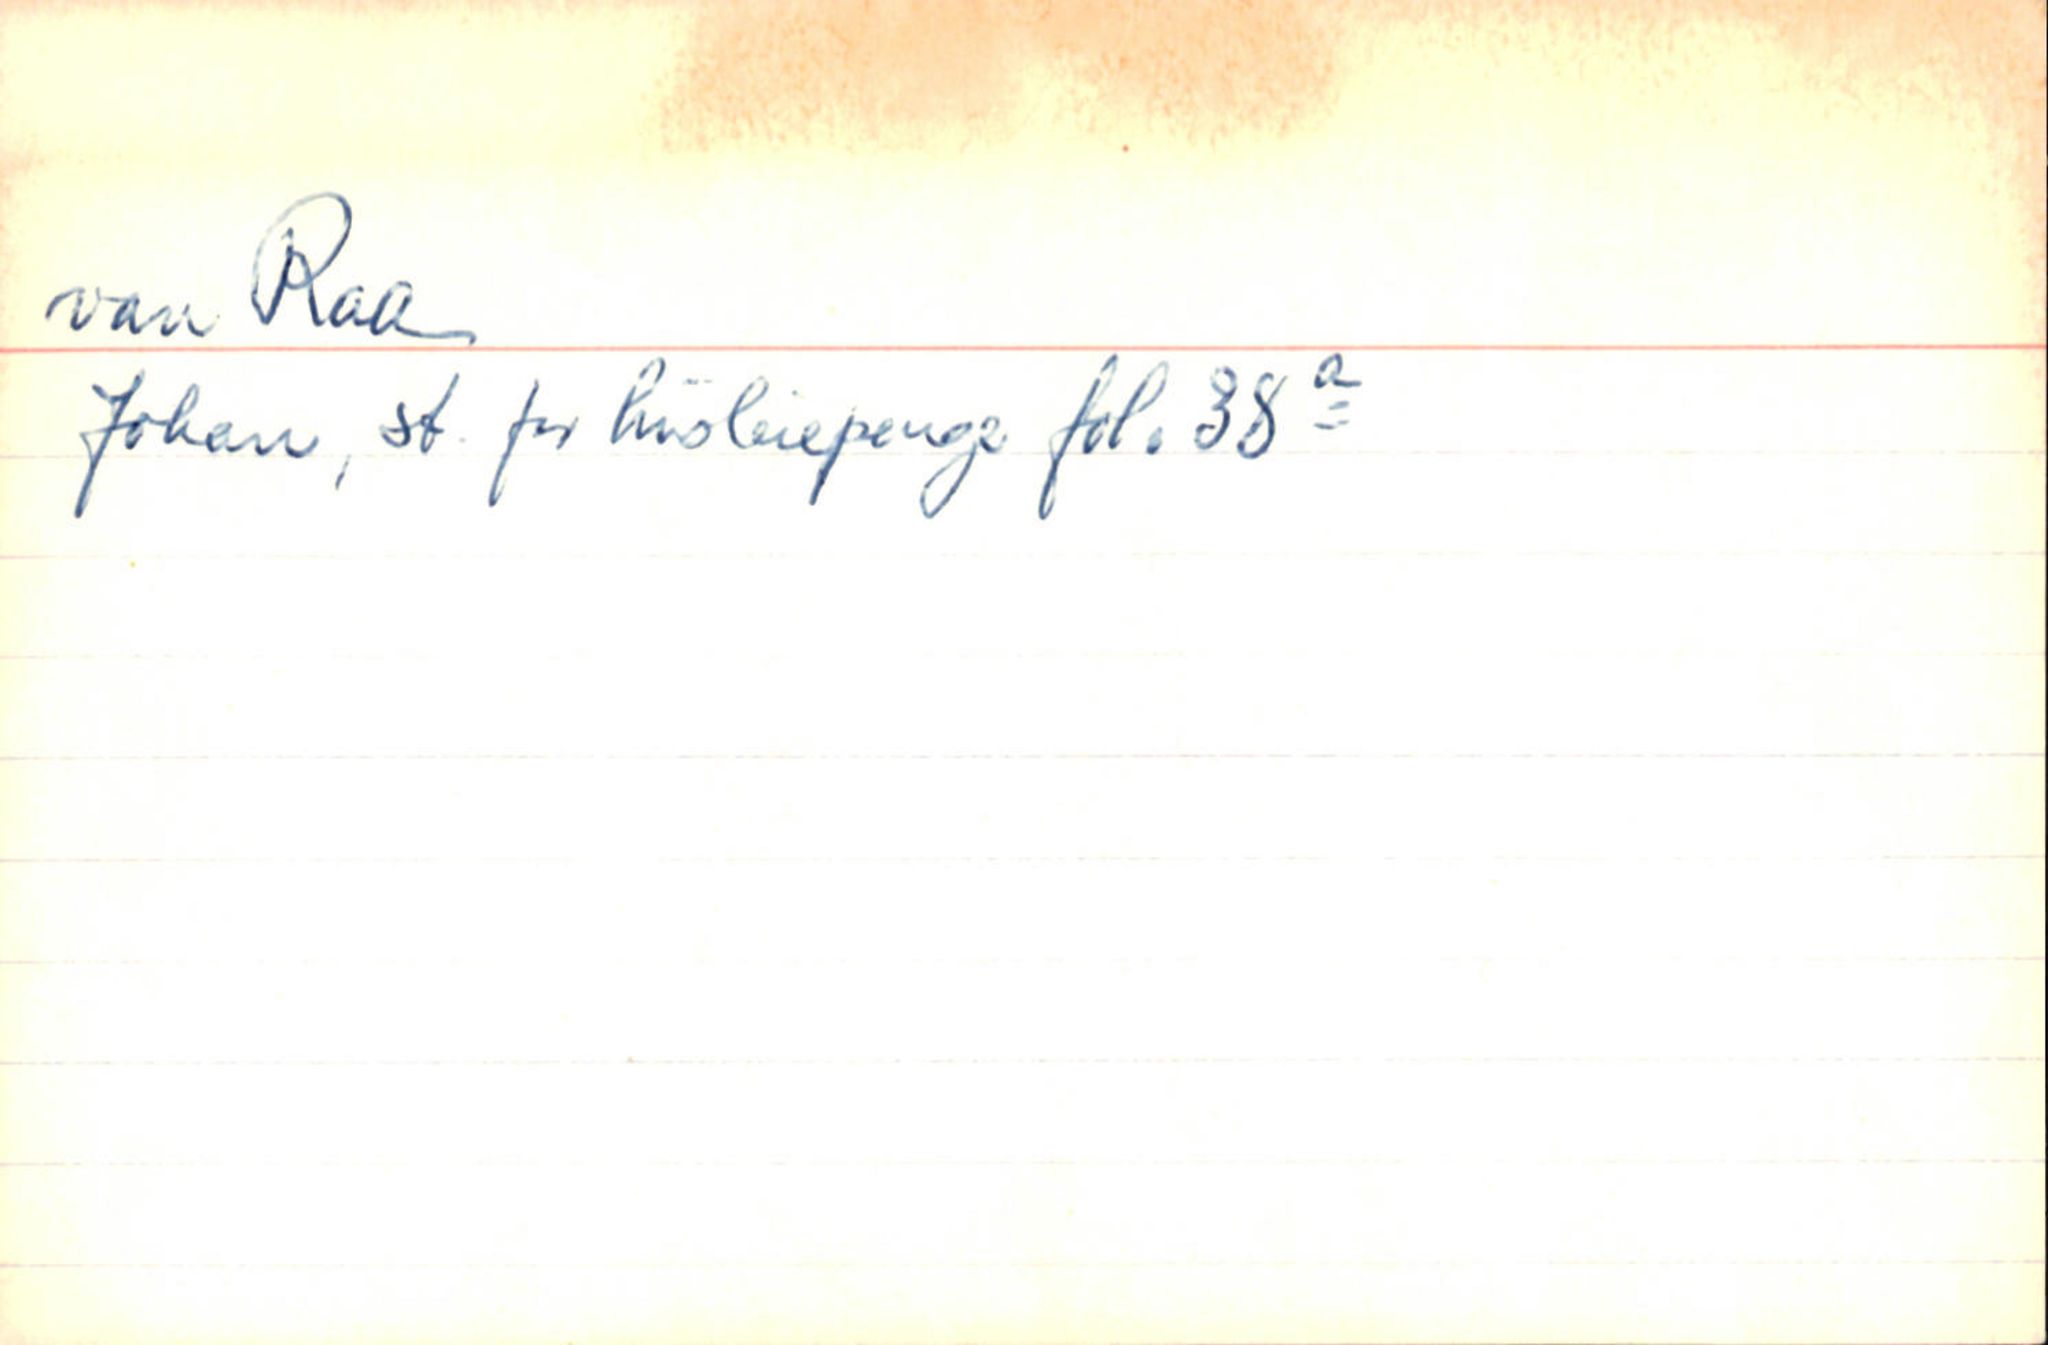 van Raa
Johan, st. for hüsleiepenge fol. 38ª